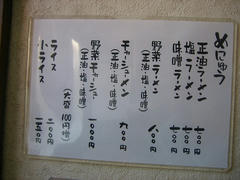 めにゅう
正油ラーメン 七〇〇
塩ラーメン 七〇〇
味噌ラーメン 七〇〇
野菜ラーメン 八〇〇
(正油・塩・味噌)
チャーシューメン 九〇〇
(正油・塩・味噌)
野菜チャーシュー 一〇〇〇
(正油・塩・味噌)
(大盛 100円増)
ライス 二〇〇
小ライス 一五〇